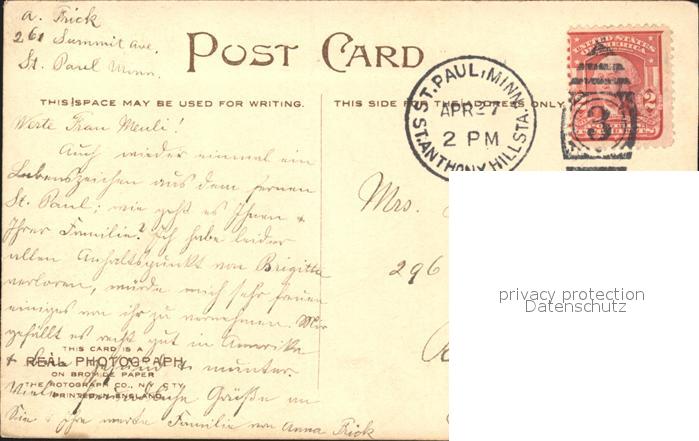 a. Frick
261 Summit Ave.
St. Paul Minn.
POST CARD
THIS SPACE MAY BE USED FOR WRITING.
THIS SIDE FOR THE ADDRESS ONLY.
UNITED STATES OF AMERICA
2
3
ST. PAUL, MINN.
APR 27
2 PM
ST. ANTHONY HILL STA.
Werte Frau Meuli!
Auch wieder einmal ein
Lebenszeichen aus dem fernen
St. Paul; wie geht es Ihnen &
Ihrer Familie? Ich habe leider
allen Anhaltspunkt von Brigitta
verloren, würde mich sehr freuen
einiges von ihr zu vernehmen. Mir
gefällt es recht gut in Amerika
& bin gesund & munter.
Viele freundliche Grüße an
Sie & ihre werte Familie von Anna Frick
THIS CARD IS A
REAL PHOTOGRAPH
ON BROMIDE PAPER
THE ROTOGRAPH CO., N.Y. CITY
PRINTED IN ENGLAND
Mrs.
296
privacy protection
Datenschutz